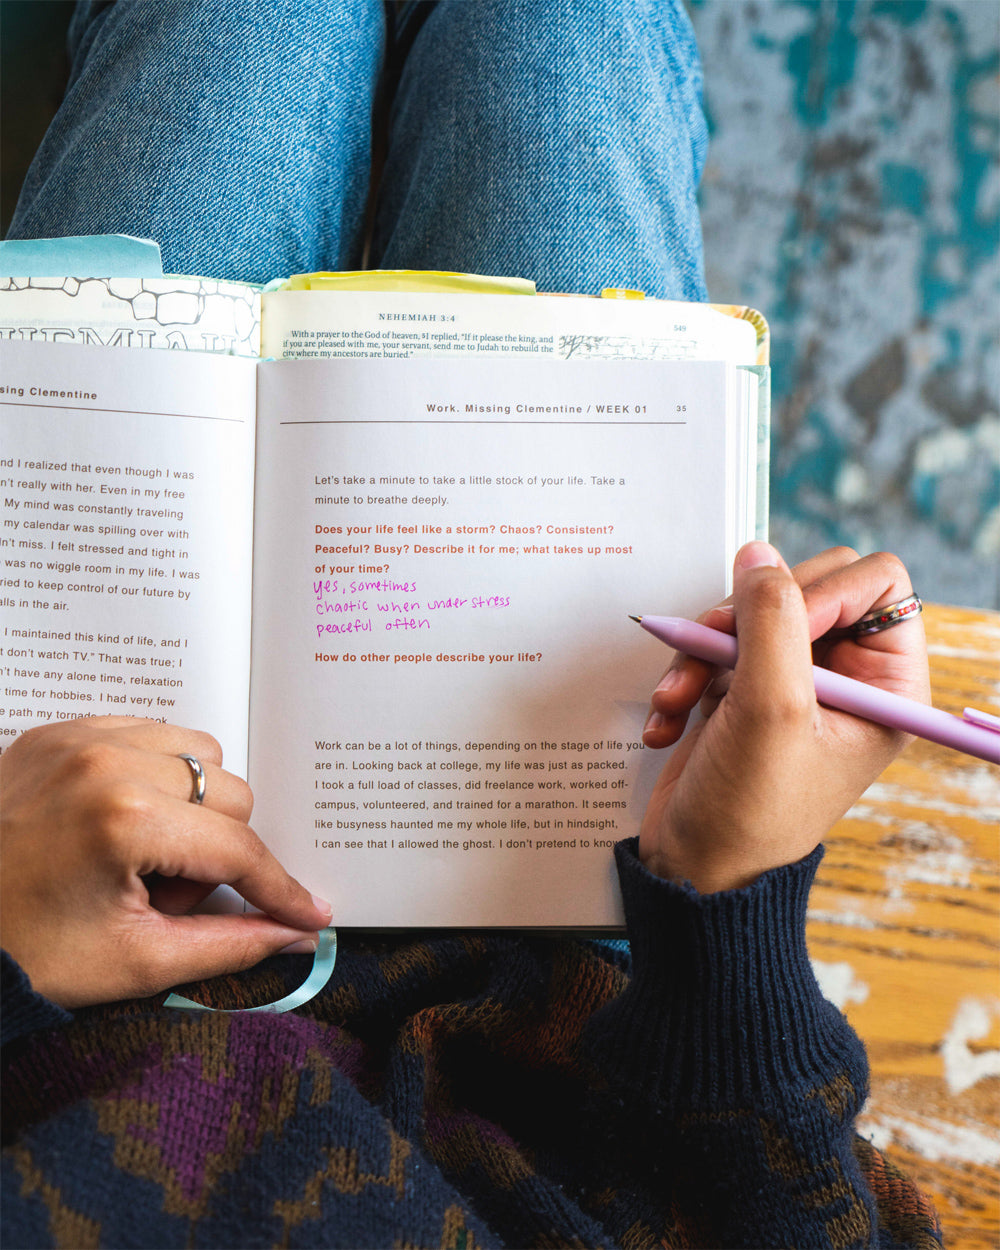 NEHEMIAH 3:4
549
With a prayer to the God of heaven, 5I replied, "If it please the king, and
if you are pleased with me, your servant, send me to Judah to rebuild the
city where my ancestors are buried."
Clementine
nd I realized that even though I was
really with her. Even in my free
My mind was constantly traveling
my calendar was spilling over with
miss. I felt stressed and tight in
was no wiggle room in my life. I was
to keep control of our future by
in the air.
I maintained this kind of life, and I
don't watch TV." That was true; I
have any alone time, relaxation
time for hobbies. I had very few
path my
Work. Missing Clementine / WEEK 01 35
Let's take a minute to take a little stock of your life. Take a
minute to breathe deeply.
Does your life feel like a storm? Chaos? Consistent?
Peaceful? Busy? Describe it for me; what takes up most
of your time?
yes, sometimes
chaotic when under stress
peaceful often
How do other people describe your life?
Work can be a lot of things, depending on the stage of life you
are in. Looking back at college, my life was just as packed.
I took a full load of classes, did freelance work, worked off-
campus, volunteered, and trained for a marathon. It seems
like busyness haunted me my whole life, but in hindsight,
I can see that I allowed the ghost. I don't pretend to know